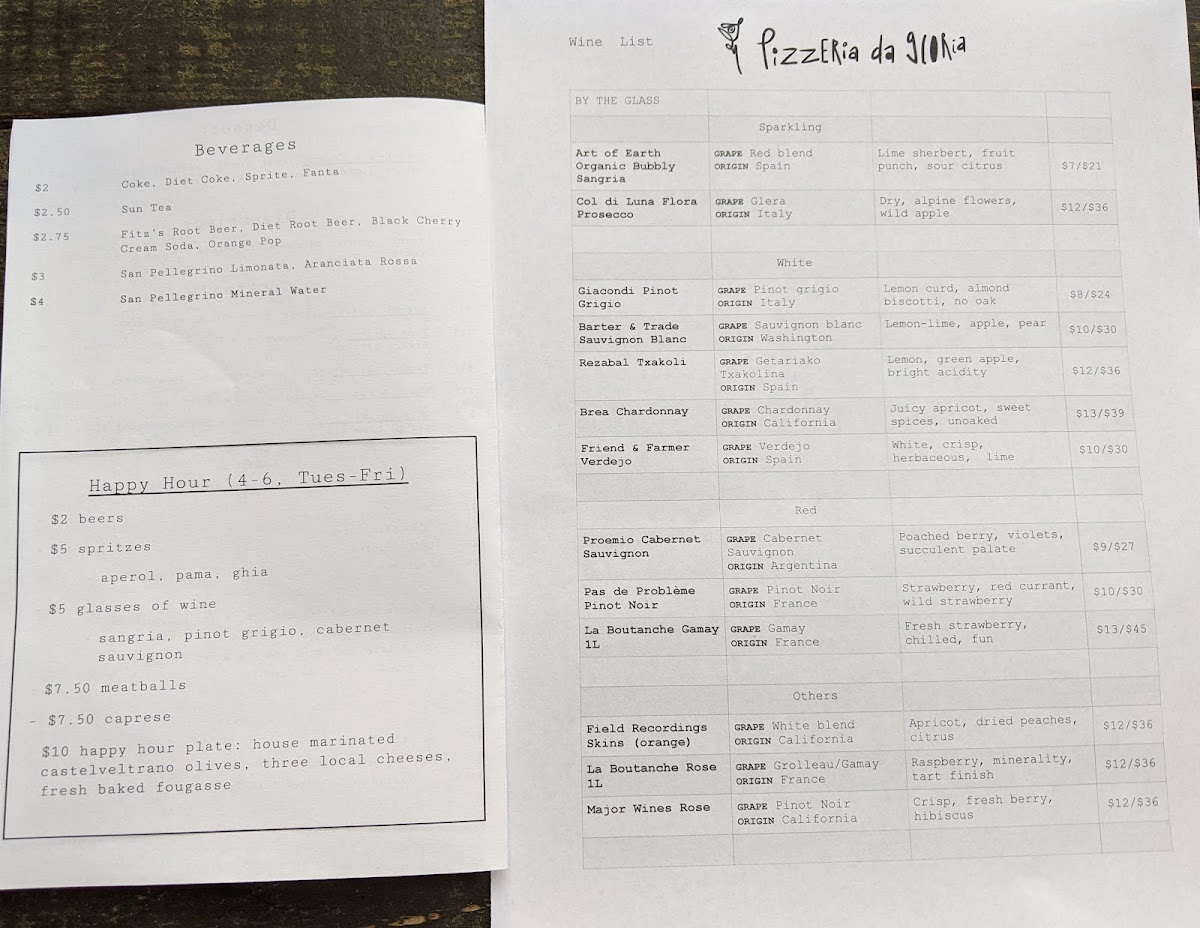 Beverages
$2 Coke, Diet Coke, Sprite, Fanta
$2.50 Sun Tea
$2.75 Fitz's Root Beer, Diet Root Beer, Black Cherry
Cream Soda, Orange Pop
$3 San Pellegrino Limonata, Aranciata Rossa
$4 San Pellegrino Mineral Water
Happy Hour (4-6, Tues-Fri)
$2 beers
$5 spritzes
aperol, pama, ghia
$5 glasses of wine
sangria, pinot grigio, cabernet
sauvignon
$7.50 meatballs
- $7.50 caprese
$10 happy hour plate: house marinated
castelveltrano olives, three local cheeses,
fresh baked fougasse
Wine List
Pizzeria da Gloria
BY THE GLASS
Sparkling
Art of Earth GRAPE Red blend Lime sherbert, fruit
Organic Bubbly ORIGIN Spain punch, sour citrus $7/$21
Sangria
Col di Luna Flora GRAPE Glera Dry, alpine flowers,
Prosecco ORIGIN Italy wild apple $12/$36
White
Giacondi Pinot GRAPE Pinot grigio Lemon curd, almond
Grigio ORIGIN Italy biscotti, no oak $8/$24
Barter & Trade GRAPE Sauvignon blanc Lemon-lime, apple, pear
Sauvignon Blanc ORIGIN Washington $10/$30
Rezabal Txakoli GRAPE Getariako Lemon, green apple,
Txakolina bright acidity $12/$36
ORIGIN Spain
Brea Chardonnay GRAPE Chardonnay Juicy apricot, sweet
ORIGIN California spices, unoaked $13/$39
Friend & Farmer GRAPE Verdejo White, crisp,
Verdejo ORIGIN Spain herbaceous, lime $10/$30
Red
Proemio Cabernet GRAPE Cabernet Poached berry, violets,
Sauvignon Sauvignon succulent palate $9/$27
ORIGIN Argentina
Pas de Problème GRAPE Pinot Noir Strawberry, red currant,
Pinot Noir ORIGIN France wild strawberry $10/$30
La Boutanche Gamay GRAPE Gamay Fresh strawberry,
1L ORIGIN France chilled, fun $13/$45
Others
Field Recordings GRAPE White blend Apricot, dried peaches,
Skins (orange) ORIGIN California citrus $12/$36
La Boutanche Rose GRAPE Grolleau/Gamay Raspberry, minerality,
1L ORIGIN France tart finish $12/$36
Major Wines Rose GRAPE Pinot Noir Crisp, fresh berry,
ORIGIN California hibiscus $12/$36